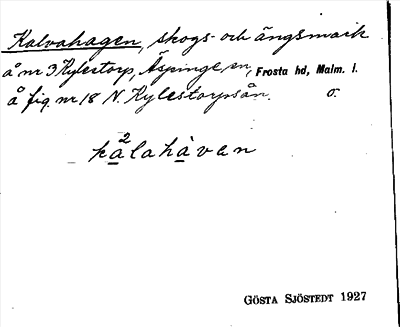 Kalvahagen, skogs- och ängsmark
å nr 3 Kylestorp, Äspinge, sn, Frosta hd, Malm. l.
å fig. nr 18 N. Kylestorpsån. o.
2
kalahàvan
GÖSTA SJÖSTEDT 1927